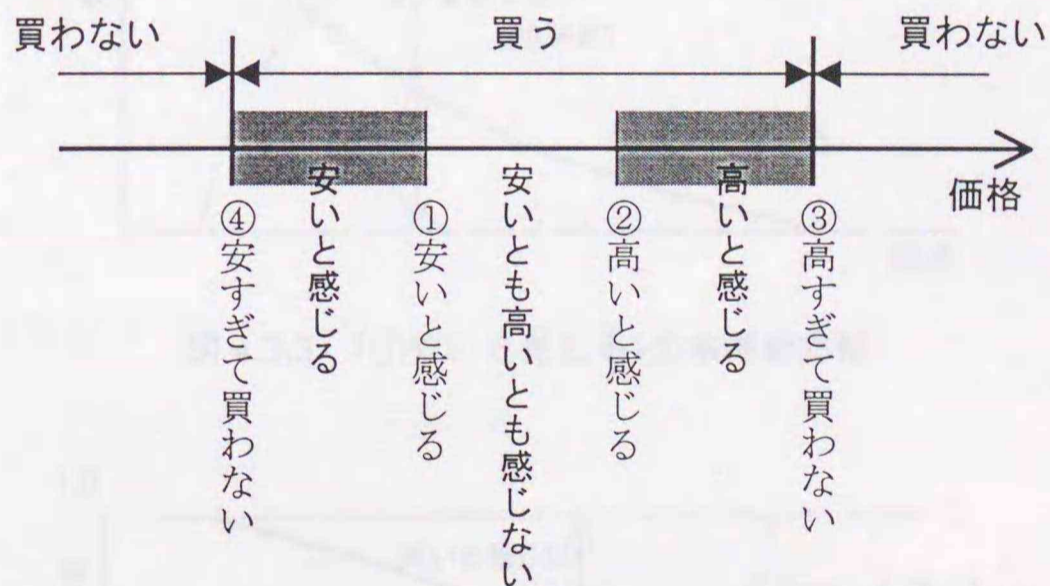 買わない
買う
買わない
価格
④安すぎて買わない
安いと感じる
①安いと感じる
安いとも高いとも感じない
②高いと感じる
高いと感じる
③高すぎて買わない